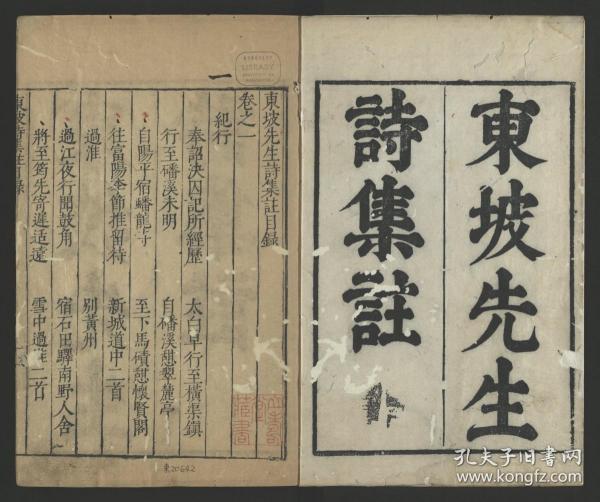 東坡先生
詩集註
東坡先生詩集註目錄
卷之一
紀行
奉詔決囚記所經歷
太白早行至橫渠鎮
行至磻溪未明
自磻溪憇翠麓亭
自陽平宿蟠龍寺
至下馬磧憇懷賢閣
往富陽李節推留待
新城道中二首
過淮
別黃州
過江夜行聞鼓角
宿石田驛南野人舍
將至筠先寄遲适遠
雪中過淮二首
東坡詩集註目錄
一
LIBRARY
藏書
東20642
孔夫子旧书网
www.kongfz.com